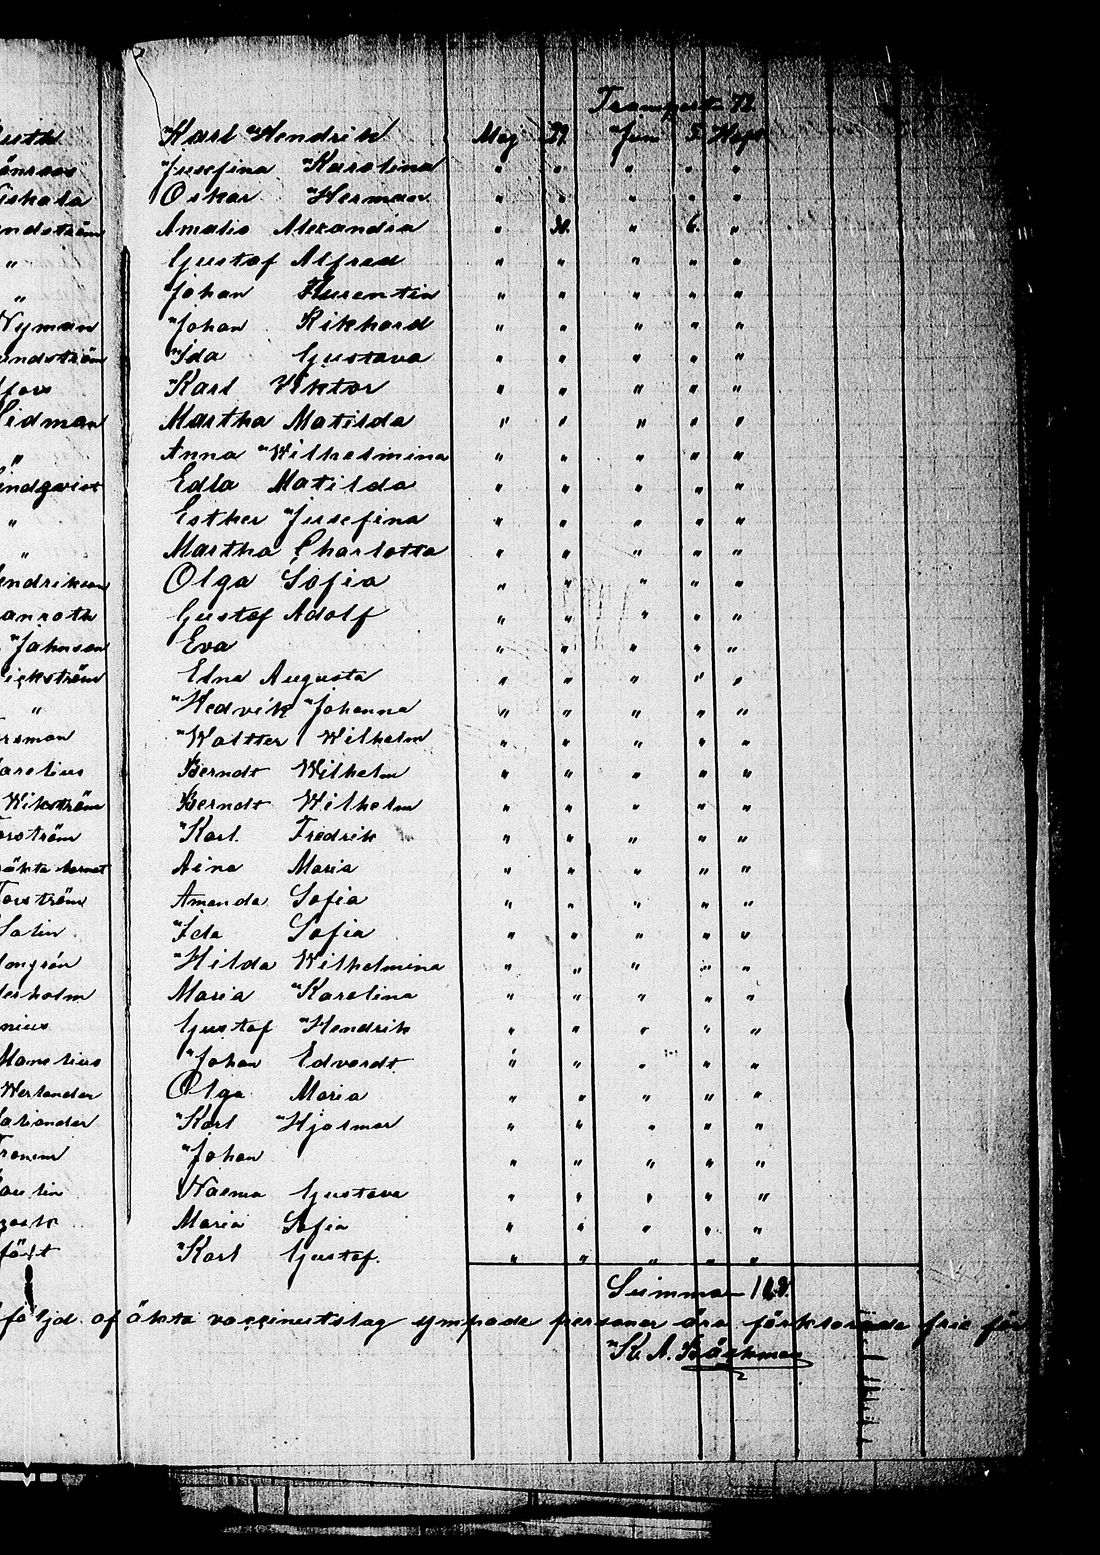 Transport 72
Karl Hendrik Maj 29. Juni 5. Kopp
Jusefina Karolina " " " " "
Oskar Herman " " " " "
ndström Amalia Alexandra " 30. " 6. "
" Gustaf Alfred " " " " "
" Johan Florentin " " " " "
Nyman Johan Rikhard " " " " "
undström Ida Gustava " " " " "
fors Karl Viktor " " " " "
idman Martha Matilda " " " " "
" Anna Wilhelmina " " " " "
indqvist Edla Matilda " " " " "
" Esther Jusefina " " " " "
" Martha Charlotta " " " " "
endrikson Olga Sofia " " " " "
anroth Gustaf Adolf " " " " "
Johnson Eva " " " " "
ickström Edna Augusta " " " " "
" Hedvik Johanna " " " " "
rsman Waltter Wilhelm " " " " "
arelius Berndt Wilhelm " " " " "
Wikström Berndt Wilhelm " " " " "
orström Karl Fredrik " " " " "
äkta barnet Aina Maria " " " " "
Forström Amanda Sofia " " " " "
Salin Ida Sofia " " " " "
longrén Hilda Wilhelmina " " " " "
derholm Maria Karolina " " " " "
nius Gustaf Hendrik " " " " "
Manelius Johan Edvardt " " " " "
Werlander Olga Maria " " " " "
Karl Hjalmar " " " " "
Johan " " " " "
Naema Gustava " " " " "
Maria Sofia " " " " "
Karl Gustaf. " " " " "
Summa 108.
följd af äkta vaccineutslag ympade personer äro förklarade frie för
K. A. Bäckman